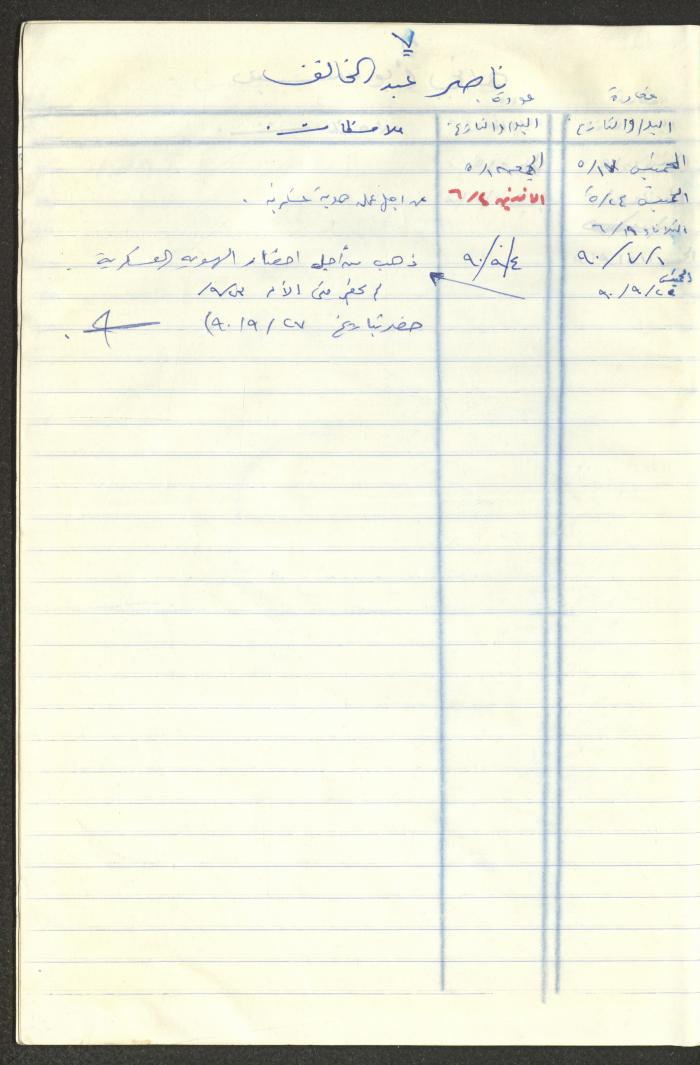 ٧
ناصر عبد الخالق
مغادرة عودة
اليوم والتاريخ اليوم والتاريخ ملاحظات
الخميس ٥/١٧ الجمعة ٥/١٨
الخميس ٥/٢٤ الاثنين من اجل عمل هوية عسكرية .
الثلاثاء ٦/١٩
٩٠/٧/١ ٩٠/٩/٤ ذهب من أجل احضار الهوية العسكرية
الخميس
٩٠/٩/٢٠ لم يحضر حتى الأن
حضر بتاريخ ٩٠/٩/٢٧